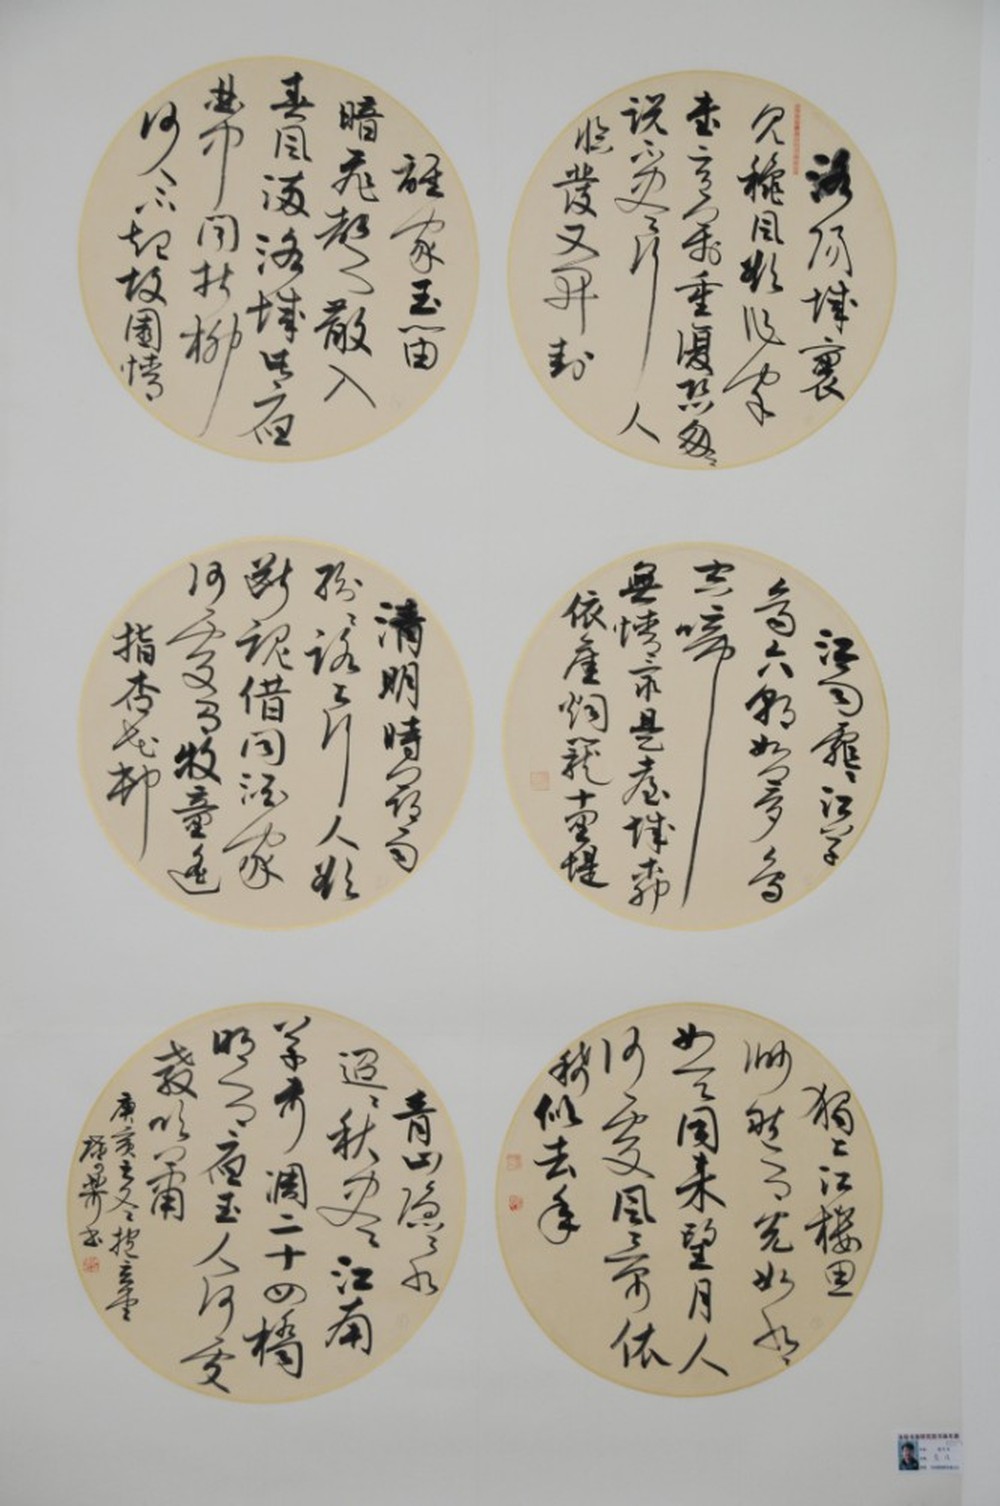 洛陽城裏
見穐風欲作家
書意萬重復恐匆匆
説不盡行人
臨發又開封
誰家玉笛
暗飛聲散入
春風滿洛城此夜
曲中聞折柳
何人不起故園情
江雨霏霏江草
齊六朝如夢鳥
空啼
無情最是臺城柳
依舊烟籠十里堤
清明時節雨
紛紛路上行人欲
斷魂借問酒家
何處有牧童遥
指杏花邨
獨上江樓思
渺然月光如水水
如天同來望月人
何處風景依
稀似去年
青山隱隱水
迢迢秋盡江南
草木凋二十四橋
明月夜玉人何處
教吹簫